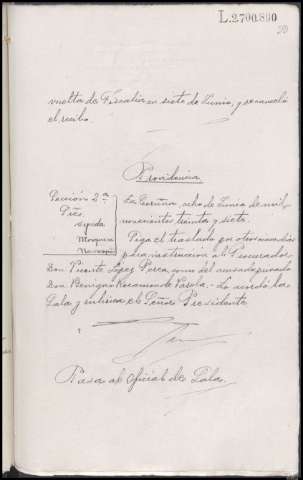 L.2.700.890
vuelta de Fiscalia en siete de Junio, y se canceló
el recibo.
Providencia
Sección 2ª
Pres.
Ojeda
Mosquera
La Coruña, ocho de Junio de mil
novecientos treinta y siete.
Siga el traslado por otros dias
para instruccion al Procurador
Don Vicente López Perea como del acusado privado
Don Benigno de Varela. - Lo acordó la
Sala y rubrica el Señor Presidente
Pasa al Oficial de Sala.